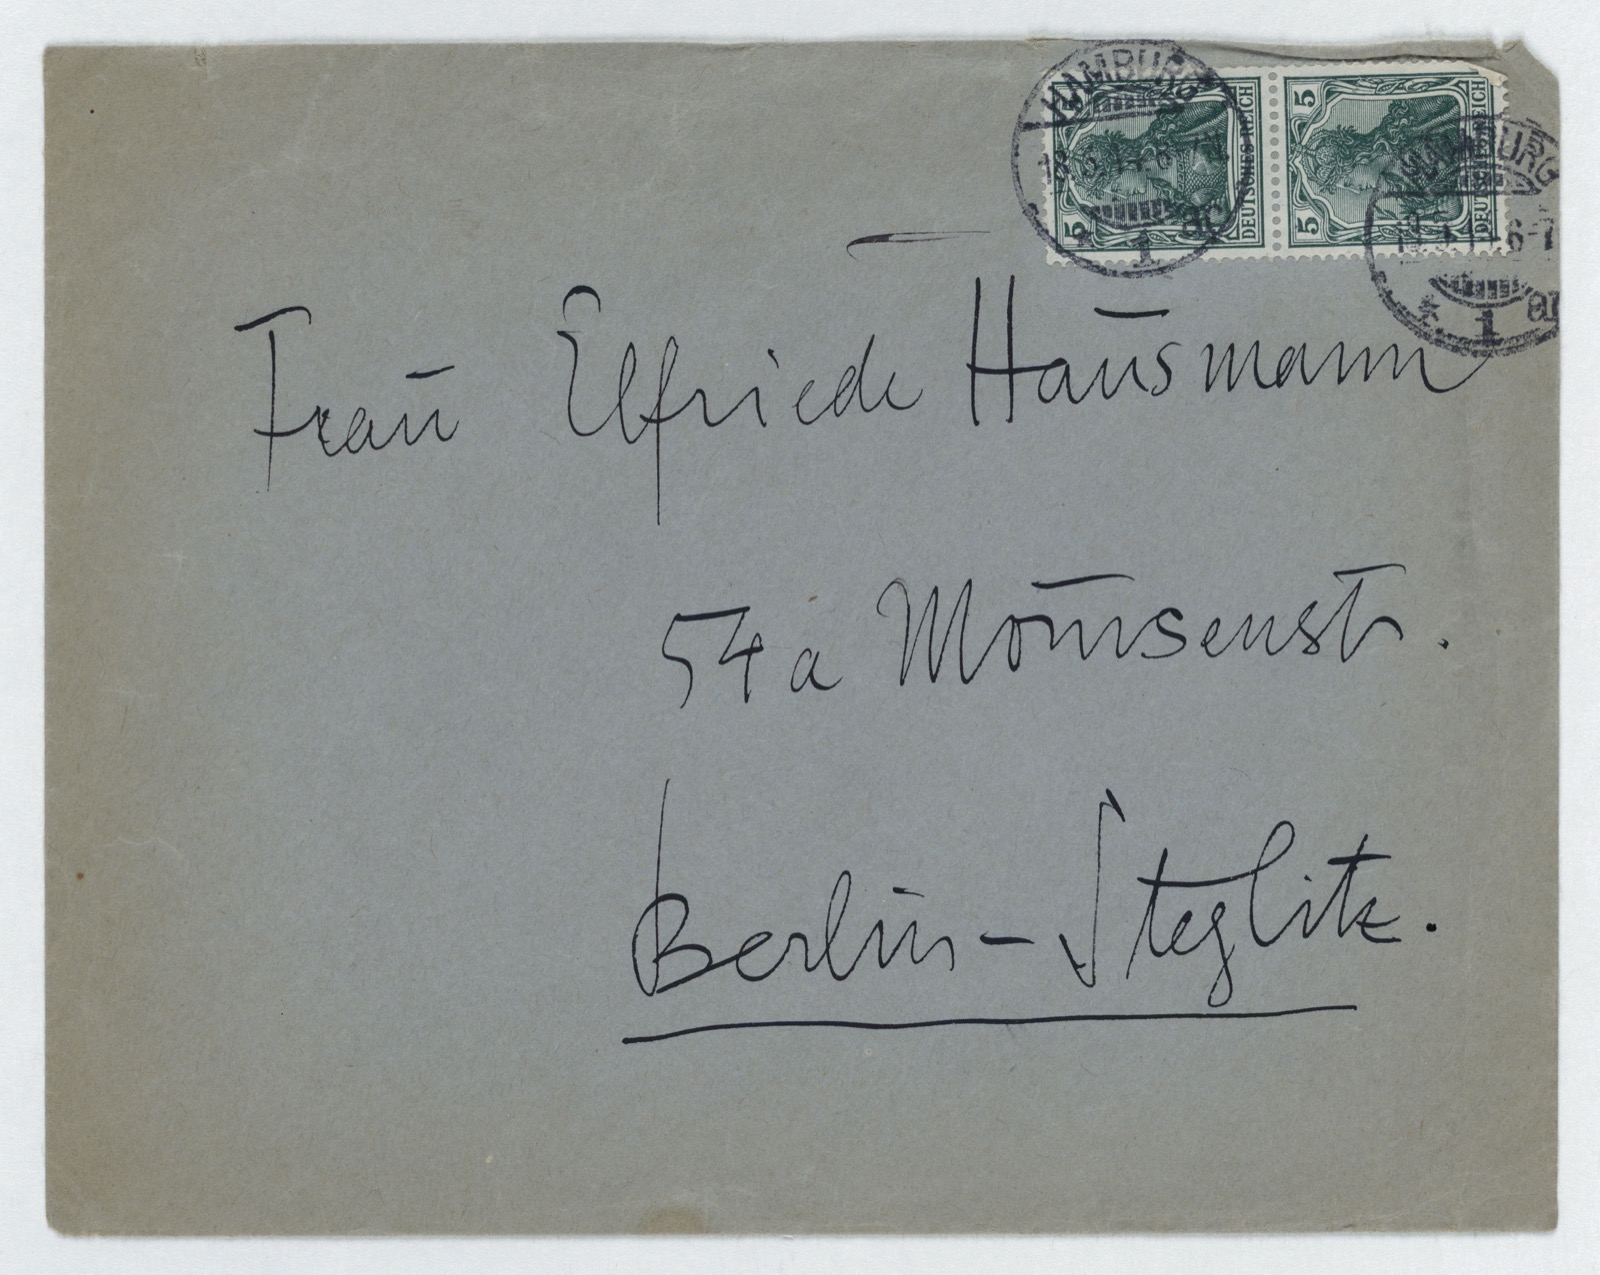 HAMBURG
1 ar
5 5 DEUTSCHES REICH
5 5 DEUTSCHES REICH
HAMBURG
6-7
1 ar
Frau Elfriede Hausmann
54a Mom̅senstr.
Berlin-Steglitz.